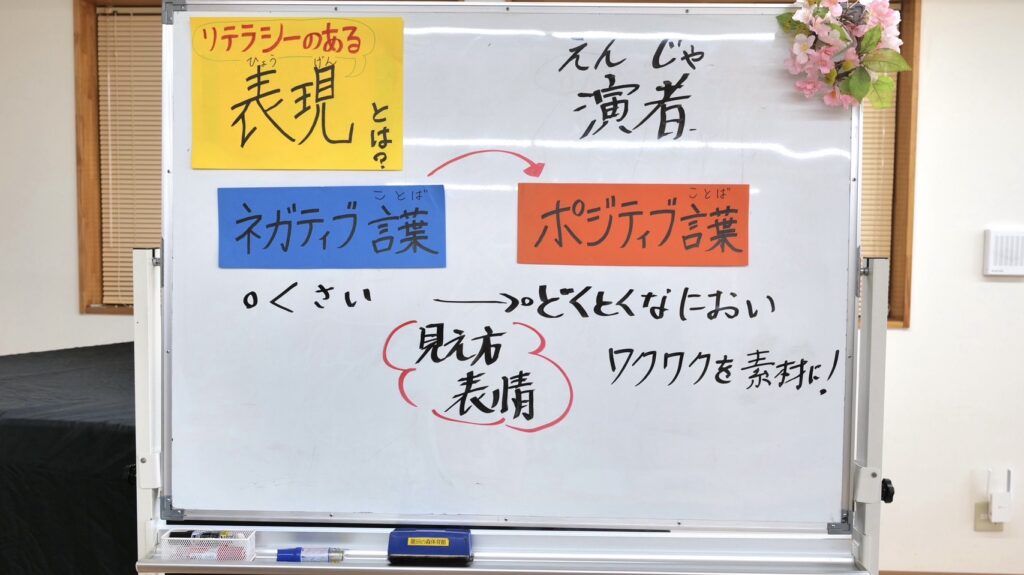 リテラシーのある
ひょう げん
表現
とは？
えんじゃ
演者
ことば
ネガティブ言葉
ことば
ポジティブ言葉
くさい
どくとくなにおい
見え方
表情
ワクワクを素材に！